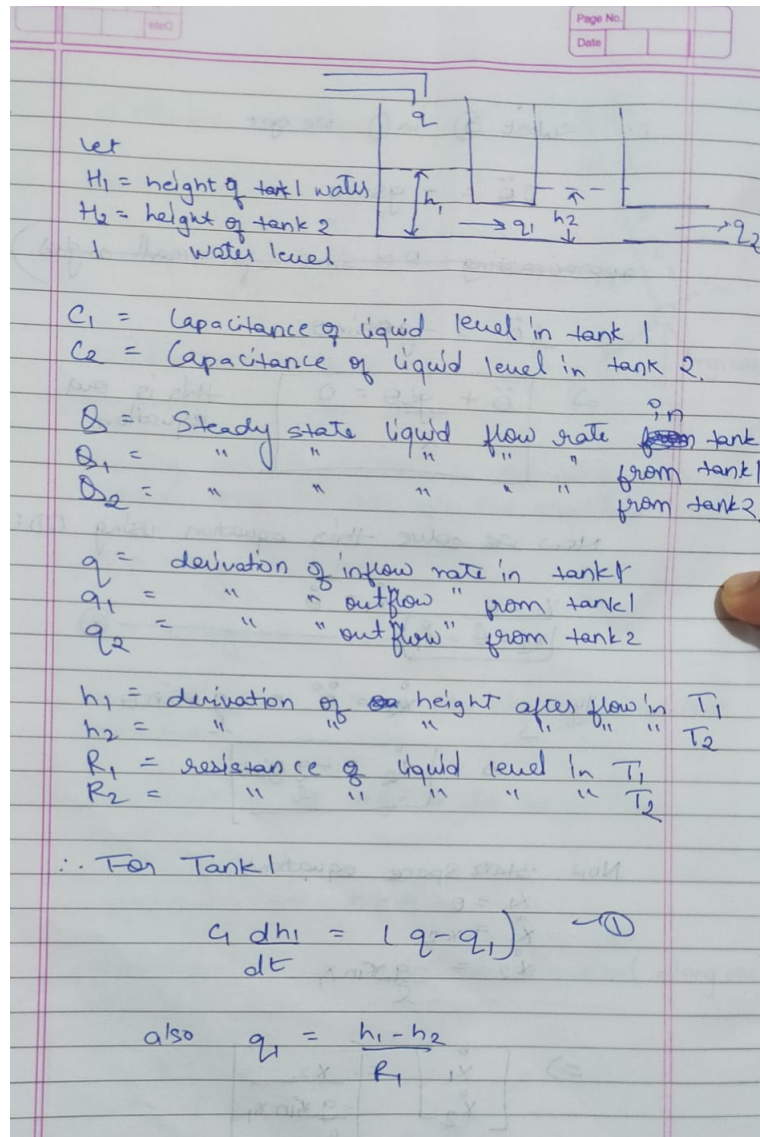 Page No.
Date
q
let
H1 = height of tank1 water
H2 = height of tank 2
water level
h1
→ q1
h2
→ q2
C1 = Capacitance of liquid level in tank 1
C2 = Capacitance of liquid level in tank 2.
Q = Steady state liquid flow rate in tank
Q1 = " " " " " from tank1
Q2 = " " " " " from tank2.
q = derivation of inflow rate in tank1
q1 = " " outflow " from tank1
q2 = " " outflow " from tank2
h1 = derivation of height after flow in T1
h2 = " " " " " " T2
R1 = resistance of liquid level in T1
R2 = " " " " " T2
∴ For Tank1
C1 dh1/dt = (q-q1) —①
also q1 = h1-h2/R1